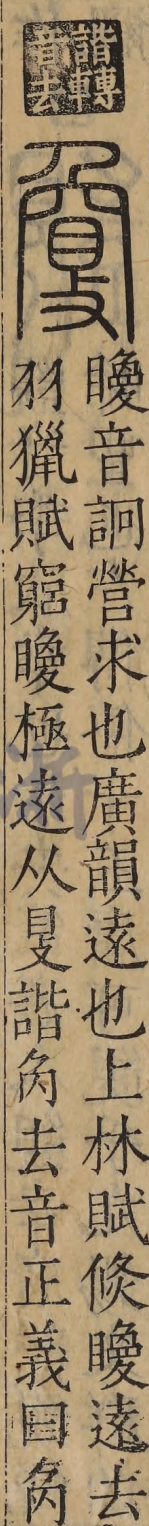 諧轉
音去
夐
矎音詗營求也廣韻遠也上林賦倏矎遠去
羽獵賦窮矎極遠从𥄎諧去音正義曰